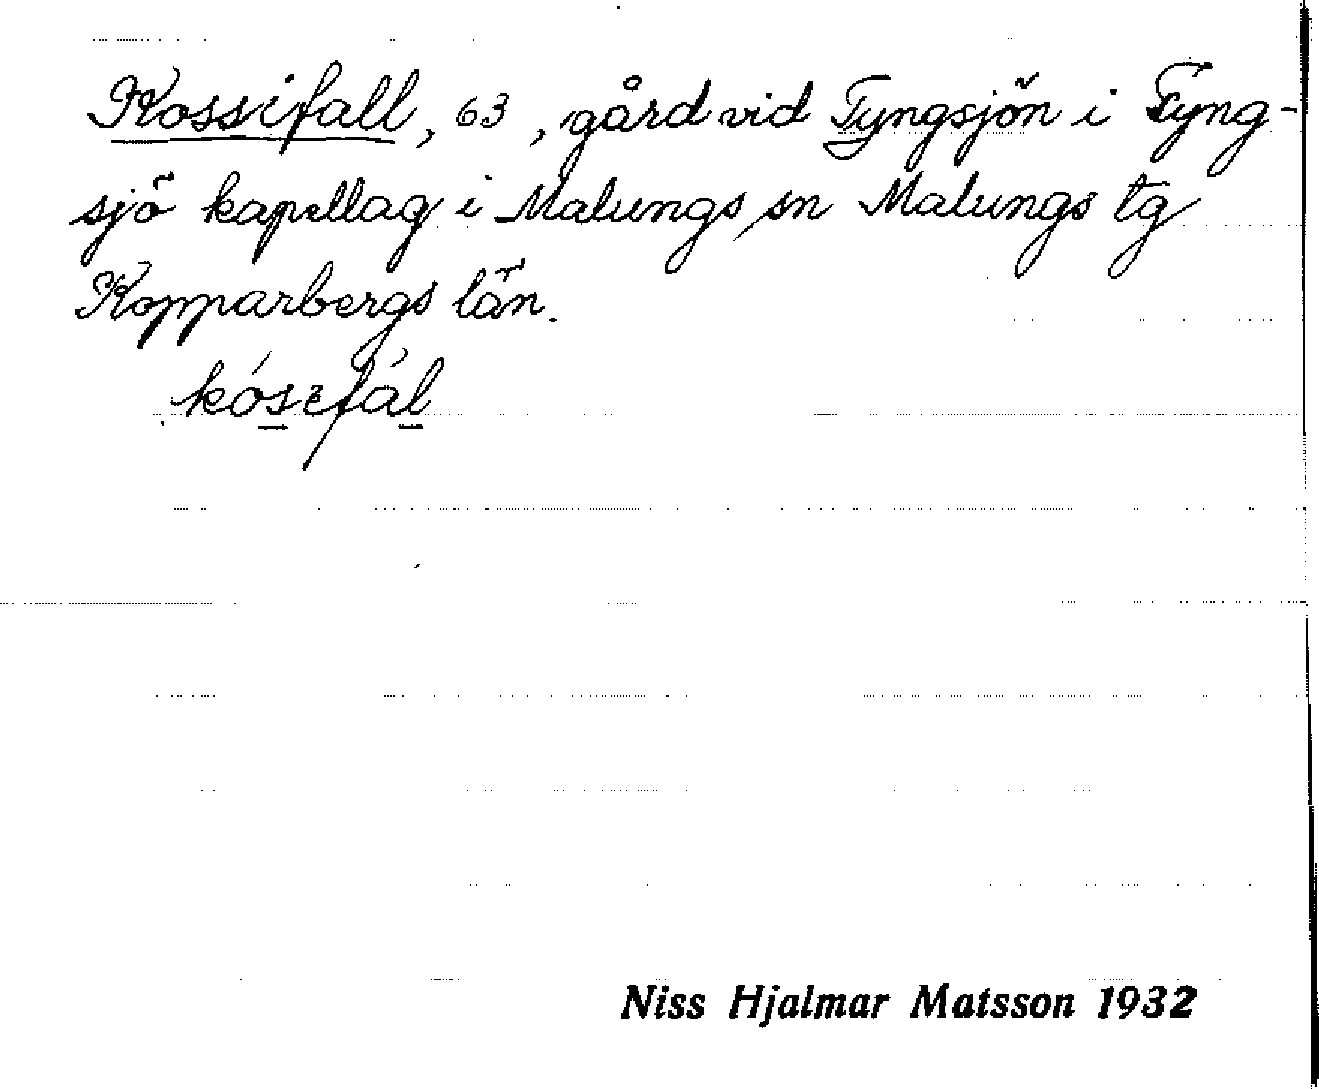 Kossifall, 63, gård vid Tyngsjön i Tyng-
sjö kapellag i Malungs sn Malungs tg
Kopparbergs län.
kósɩfál
Niss Hjalmar Matsson 1932